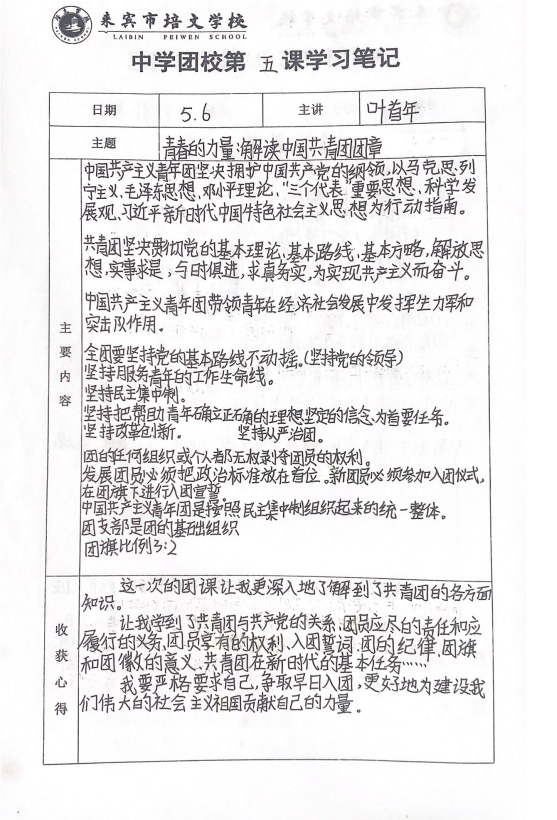 来宾市培文学校
LAIBIN PEIWEN SCHOOL
中学团校第 五 课学习笔记
日期 5.6 主讲 叶首年
主题 青春的力量:解读中国共青团团章
主要内容
中国共产主义青年团坚决拥护中国共产党的纲领,以马克思列
宁主义、毛泽东思想、邓小平理论、"三个代表"重要思想、科学发
展观、习近平新时代中国特色社会主义思想为行动指南。
共青团坚决贯彻党的基本理论、基本路线、基本方略,解放思
想,实事求是,与时俱进,求真务实,为实现共产主义而奋斗。
中国共产主义青年团带领青年在经济社会发展中发挥生力军和
突击队作用。
全团要坚持党的基本路线不动摇。(坚持党的领导)
坚持服务青年的工作生命线。
坚持民主集中制。
坚持把帮助青年确立正确的理想坚定的信念为首要任务。
坚持改革创新。 坚持从严治团。
团的任何组织或个人都无权剥夺团员的权利。
发展团员必须把政治标准放在首位。新团员必须参加入团仪式,
在团旗下进行入团宣誓。
中国共产主义青年团是按照民主集中制组织起来的统一整体。
团支部是团的基础组织
团旗比例3:2
收获心得
这一次的团课让我更深入地了解到了共青团的各方面
知识。
让我学到了共青团与共产党的关系、团员应尽的责任和应
履行的义务、团员享有的权利、入团誓词、团的纪律、团旗
和团徽的意义、共青团在新时代的基本任务……
我要严格要求自己,争取早日入团,更好地为建设我
们伟大的社会主义祖国贡献自己的力量。